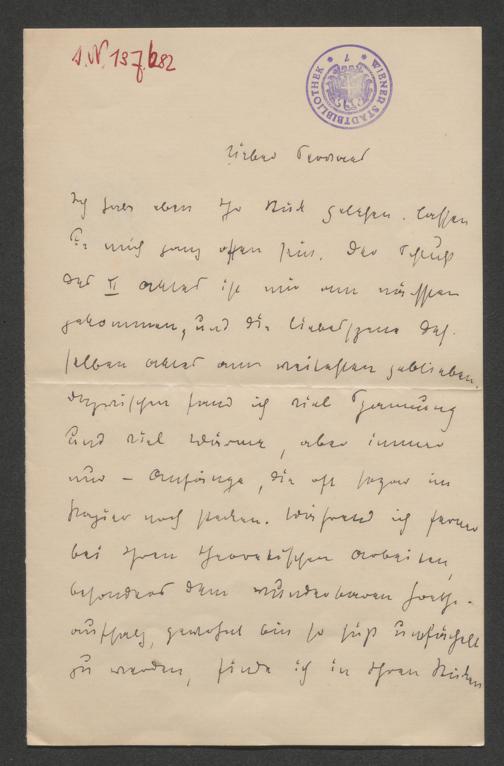 I. N. 137.282
WIENER STADTBIBLIOTHEK
Lieber
Ich habe eben Ihr Stück gelesen. Lassen
Sie mich ganz offen sein. Der Schluß
des II Aktes ist mir am nächsten
gekommen, und die Liebesszene des-
selben Aktes am weitesten geblieben.
Dazwischen fand ich viel Spannung
und viel Wärme, aber immer
nur – Anfänge, die oft sogar im
Papier noch stecken. Während ich ferner
bei Ihren theoretischen Arbeiten,
besonders dem wunderbaren Goethe-
aufsatz, gewohnt bin so süß
zu werden, finde ich in Ihren Stücken